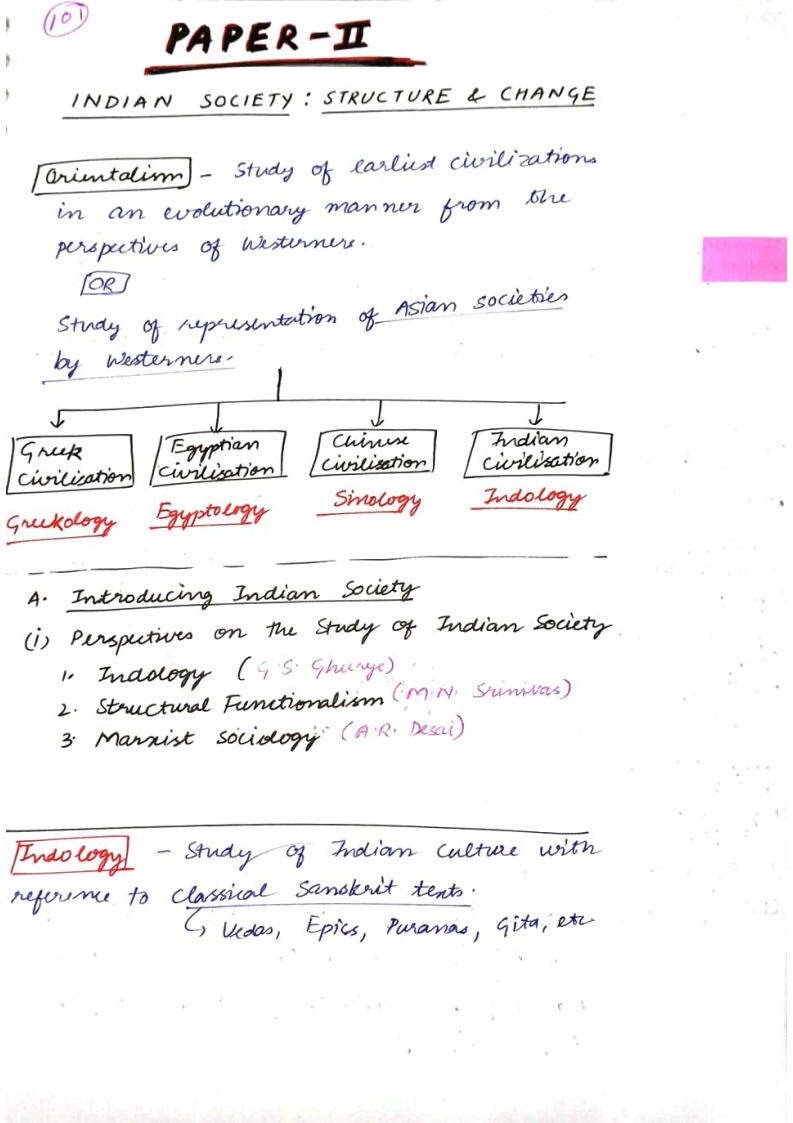 101
PAPER-II
INDIAN SOCIETY : STRUCTURE & CHANGE
Orientalism - Study of earliest civilizations
in an evolutionary manner from the
perspectives of Westerners.
OR
Study of representation of Asian societies
by Westerners.
Greek Civilization
Egyptian Civilisation
Chinese Civilisation
Indian Civilisation
Greekology
Egyptology
Sinology
Indology
A. Introducing Indian Society
(i) Perspectives on the Study of Indian Society
1. Indology (G.S. Ghurye).
2. Structural Functionalism (M.N. Srinivas)
3. Marxist sociology (A.R. Desai)
Indology - Study of Indian Culture with
reference to Classical Sanskrit texts.
↳ Vedas, Epics, Puranas, Gita, etc